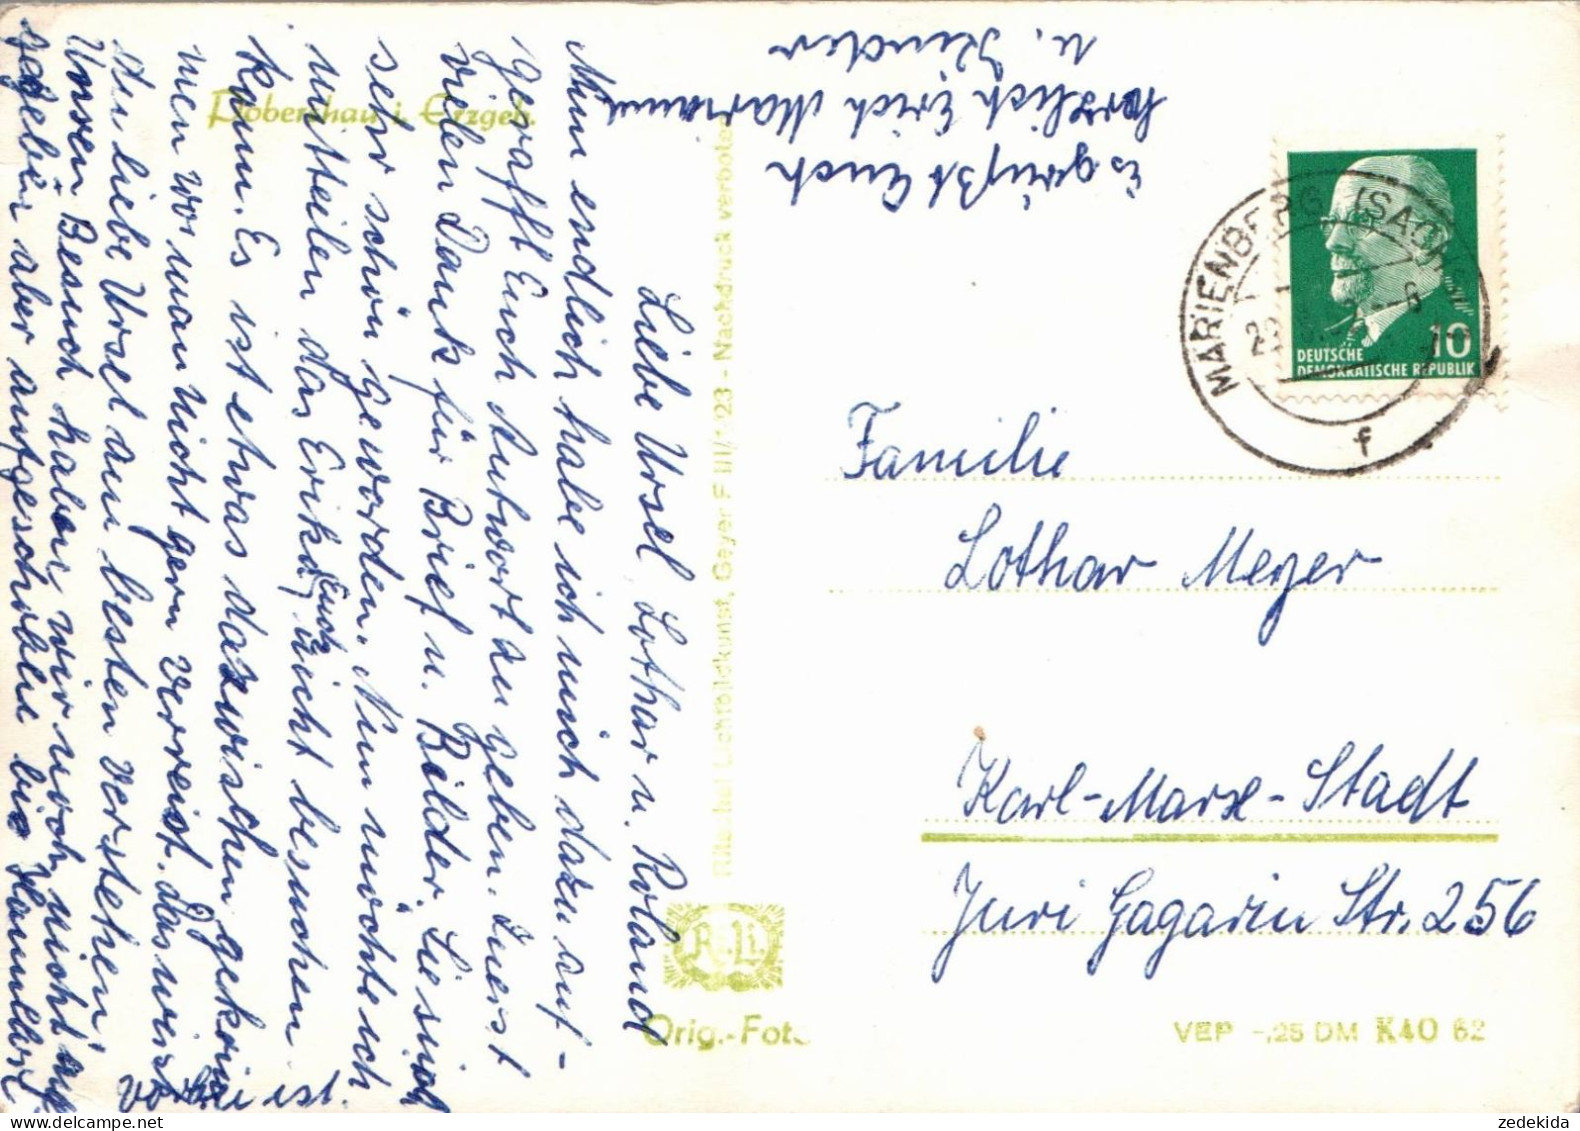 Pobershau i. Erzgeb.
Liebe Ursel, Lothar u. Roland
Nun endlich habe ich mich dazu auf-
gerafft Euch Antwort zu geben. Zuerst
vielen Dank für Brief u. Bilder. Sie sind
sehr schön geworden. Nun möchte ich
mitteilen das Erika Euch nicht besuchen
kann. Es ist etwas dazwischen gekom
men wo man nicht gern verreist. das wirst
du liebe Ursel am besten verstehen!
Unsren Besuch haben wir noch nicht auf
gegeben aber aufgeschoben bis
vorbei ist.
Es grüßt Euch
herzlich Erich Marianne
u. Kinder
Lichtbildkunst, Geyer F III/1 23 - Nachdruck verboten
R.H.
Orig.-Foto
MARIENBERG (SACHS)
f
10
DEUTSCHE
DEMOKRATISCHE REPUBLIK
Familie
Lothar Meyer
Karl-Marx-Stadt
Juri Gagarin Str. 256
VEP -,25 DM K40 62
zedekida